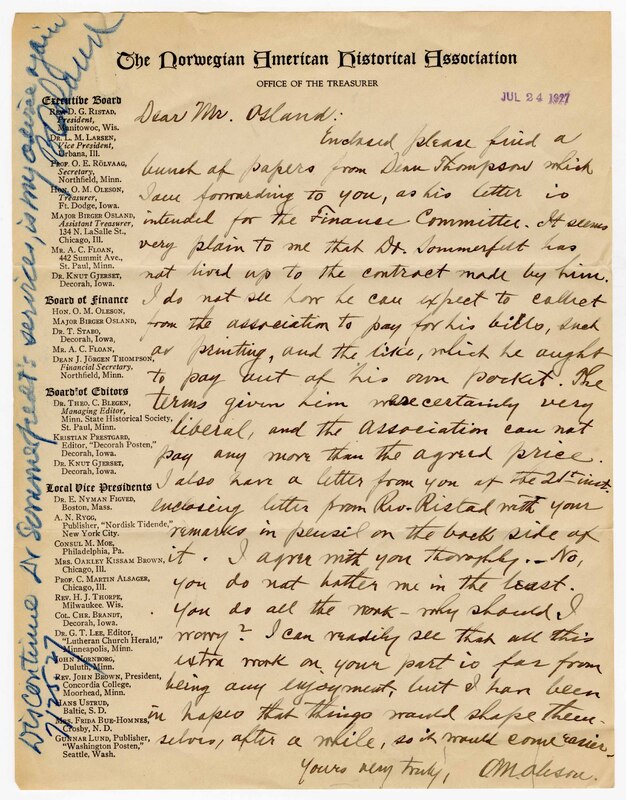 The Norwegian American Historical Association
OFFICE OF THE TREASURER
JUL 24 1927
Executive Board
Rev. D. G. Ristad,
President,
Manitowoc, Wis.
Dr. L. M. Larsen,
Vice President,
Urbana, Ill.
Prof. O. E. Rölvaag,
Secretary,
Northfield, Minn.
Hon. O. M. Oleson,
Treasurer,
Ft. Dodge, Iowa.
Major Birger Osland,
Assistant Treasurer,
134 N. LaSalle St.,
Chicago, Ill.
Mr. A. C. Floan,
442 Summit Ave.,
St. Paul, Minn.
Dr. Knut Gjerset,
Decorah, Iowa.
Board of Finance
Hon. O. M. Oleson,
Major Birger Osland,
Dr. T. Stabo,
Decorah, Iowa,
Mr. A. C. Floan,
Dean J. Jörgen Thompson,
Financial Secretary,
Northfield, Minn.
Board of Editors
Dr. Theo. C. Blegen,
Managing Editor,
Minn. State Historical Society,
St. Paul, Minn.
Kristian Prestgard,
Editor, "Decorah Posten,"
Decorah, Iowa.
Dr. Knut Gjerset,
Decorah, Iowa.
Local Vice Presidents
Dr. E. Nyman Figved,
Boston, Mass.
A. N. Rygg,
Publisher, "Nordisk Tidende,"
New York City.
Consul M. Moe,
Philadelphia, Pa.
Mrs. Oakley Kissam Brown,
Chicago, Ill.
Prof. C. Martin Alsager,
Chicago, Ill.
Rev. H. J. Thorpe,
Milwaukee. Wis.
Col. Chr. Brandt,
Decorah, Iowa.
Dr. G. T. Lee, Editor,
"Lutheran Church Herald,"
Minneapolis, Minn.
John Hornborg,
Duluth, Minn.
Rev. John Brown, President,
Concordia College,
Moorhead, Minn.
Hans Ustrud,
Baltic, S. D.
Mrs. Frida Bue-Homnes,
Crosby, N. D.
Gunnar Lund, Publisher,
"Washington Posten,"
Seattle, Wash.
Dear Mr. Osland:
Enclosed please find a
bunch of papers from Dean Thompson which
I am forwarding to you, as his letter is
intended for the Finance Committee. It seems
very plain to me that Dr. Sommerfelt has
not lived up to the contract made by him.
I do not see how he can expect to collect
from the association to pay for his bills, such
as printing, and the like, which he ought
to pay out of his own pocket. The
terms given him were certainly very
liberal, and the Association can not
pay any more than the agreed price.
I also have a letter from you of the 21st inst.
enclosing letter from Rev. Ristad with your
remarks in pencil on the back side of
it. I agree with you thoroughly. – No,
you do not bother me in the least.
You do all the work – why should I
worry? I can readily see that all this
extra work on your part is far from
being any enjoyment, but I have been
in hopes that things would shape them-
selves, after a while, so it would come easier.
Yours very truly, O M Oleson.
Discontinue Dr Sommerfelt's services, is my advice again
7/25-27
B Osland